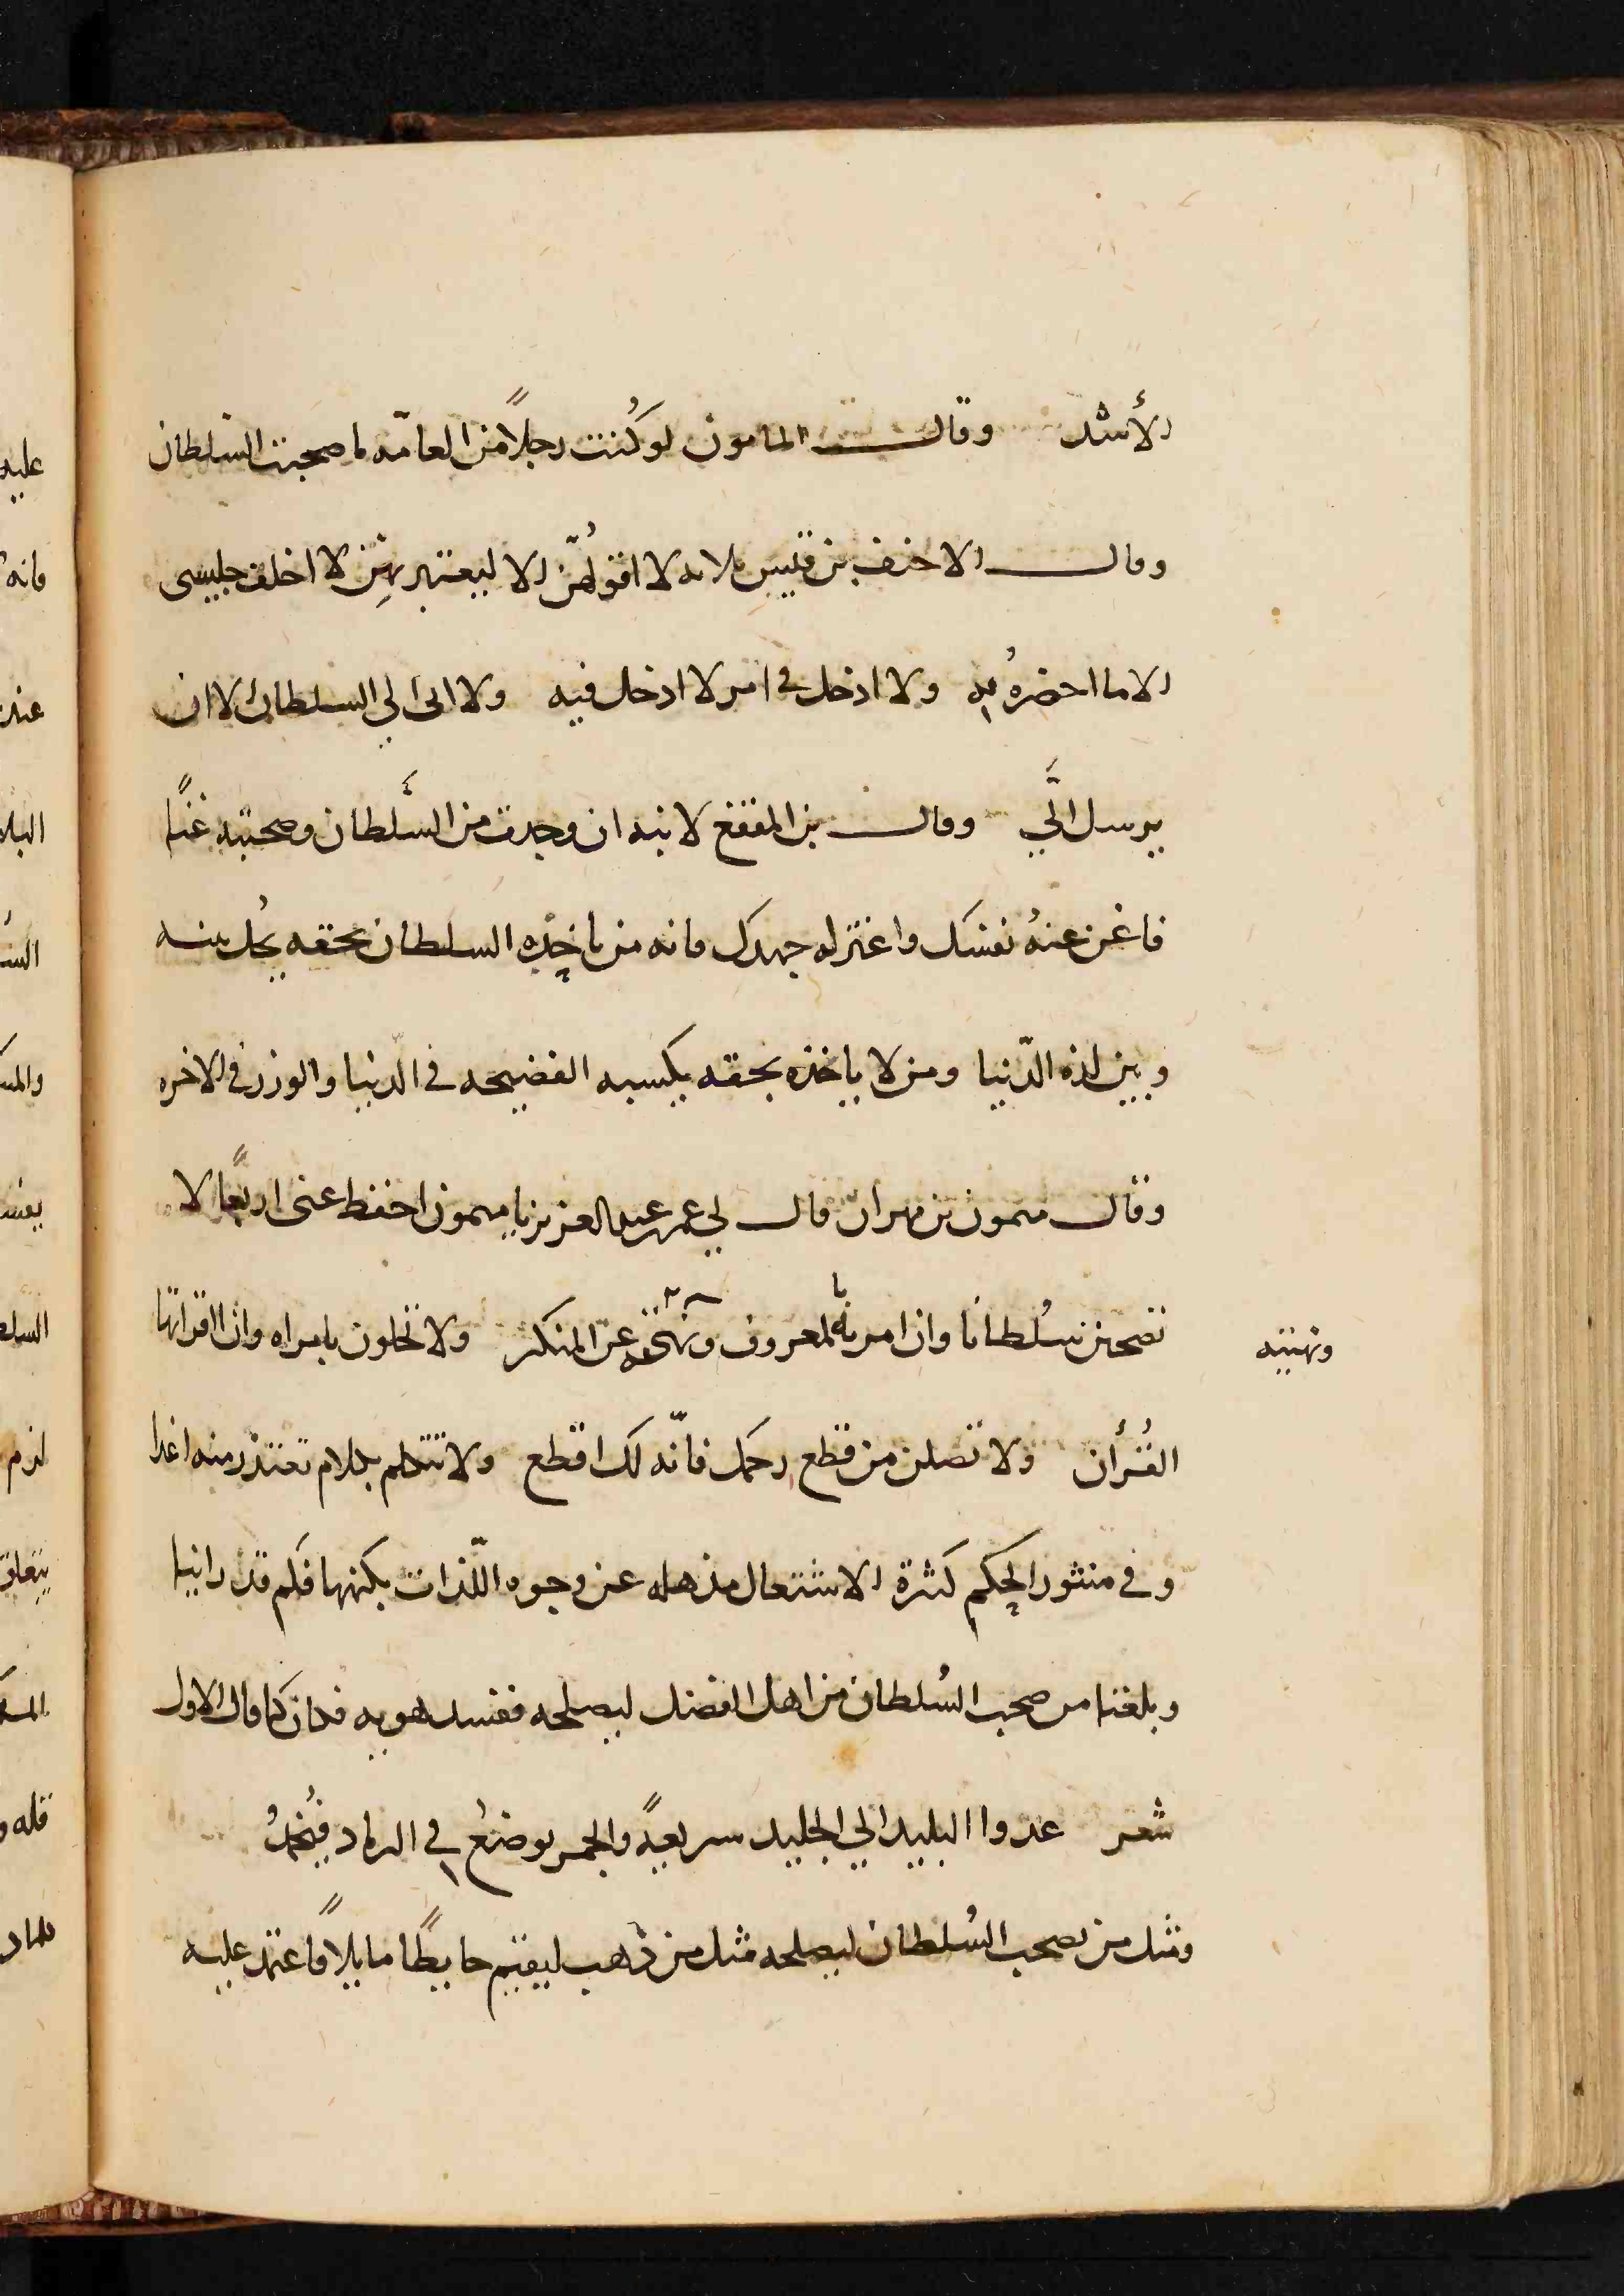 الأشد وقال المامون لو كُنت رجلاً من العامّه لما صحبت السلطان
وقال الاحنف بن قيس ثلاثه لا اقولُهنّ الا ليعتبر بهن لا اخلف جليسى
الا ما احضرهُ به ولا ادخل فى امر لا ادخل فيه ولا اتى الي السلطان الا ان
يرسل اليَّ وقال بن المقفع لابنه ان وجدت من السُّلطان وصحبته غنًا
فاغن عنهُ نفسك واعتزله جهدك فانه من ياخذه السلطان بحقه يحُل بينه
وبين لذه الدّنيا ومن لا ياخذه بحقه يكسبه الفضيحه فى الدّنيا والوزر فى الاخره
وقال ميمون بن مهران قال لي عمر بن عبد العزيز يا ميمون احفظ عنى اربعًا لا
تصحبن سُلطانا وان امرته بالمعروف ونهيته عن المنكر ولا تخلون بامراه وان اقراتها
ونهيته
القُرأن ولا تصلن من قطع رحمك فانّه لك اقطع ولا تتكلم بكلام تعتذر منه غدا
وفى منثور الحِكم كثرة الاشتغال مذهله عن وجوه اللّذات بكنهها فكم قد راينا
وبلغنا من صحب السُلطان من اهل الفضل ليصلحه ففسد هو به فكان كما قال الاول
شعر عدوا البليد الي الجليد سريعةً والجمر يوضعُ فى الرماد فيُخمدُ
ومثل من يصحب السُلطان ليصلحه مثل من ذهب ليقيم حايطًا مايلاً فاعتمد عليه